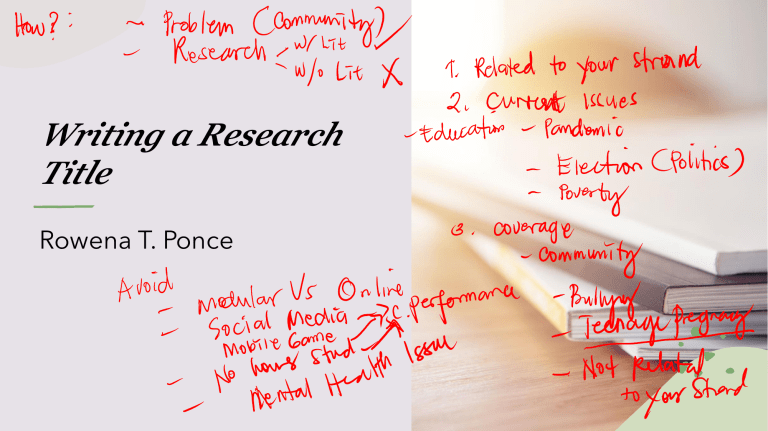 How? :
- Problem (Community) ✓
- Research
w/ Lit ✓
w/o Lit X
Writing a Research
Title
Rowena T. Ponce
Avoid
- Modular Vs Online
- Social Media
Mobile Game
performance
- No hours Stud
- Mental Health Issue
1. Related to your strand
2. Current Issues
- Education - Pandemic
- Election (Politics)
- Poverty
3. coverage
- Community
- Bullying
- Teenage Pregnancy
- Not Related
to your Strand